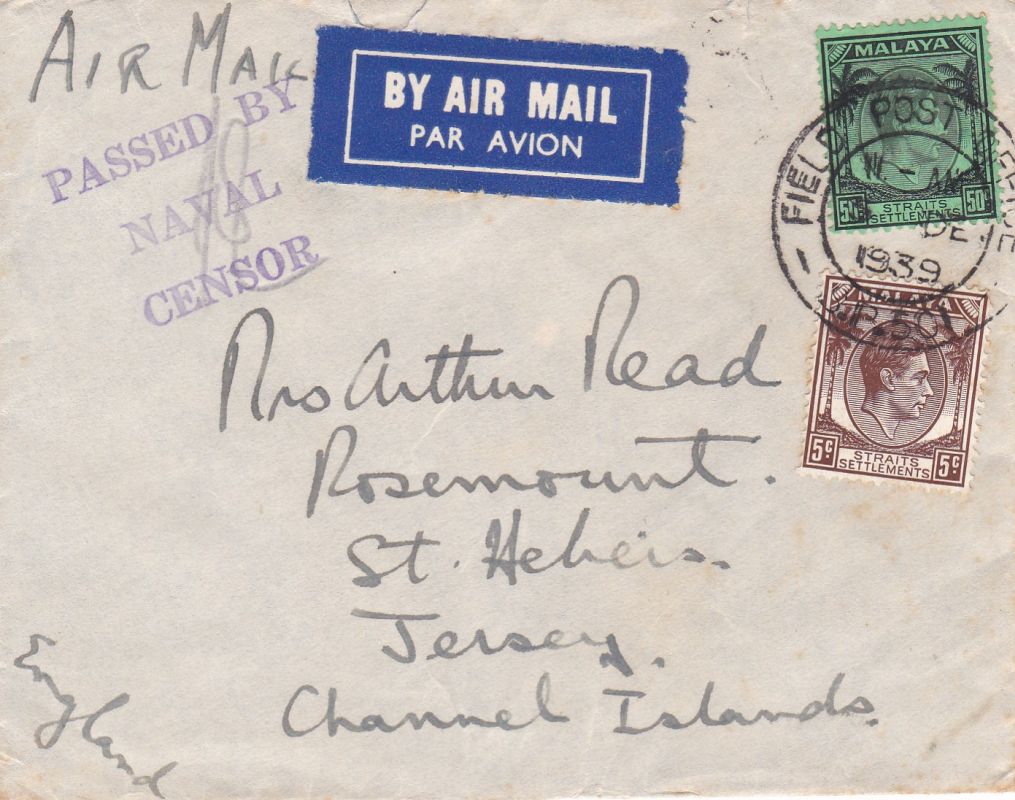 AIR MAIL
PASSED BY
NAVAL
CENSOR
BY AIR MAIL
PAR AVION
MALAYA
50c 50c
STRAITS
SETTLEMENTS
FIELD POST OFFICE
DE
1939
MALAYA
5c 5c
STRAITS
SETTLEMENTS
Mrs Arthur Read
Rosemount.
St. Heliers.
Jersey.
Channel Islands.
England